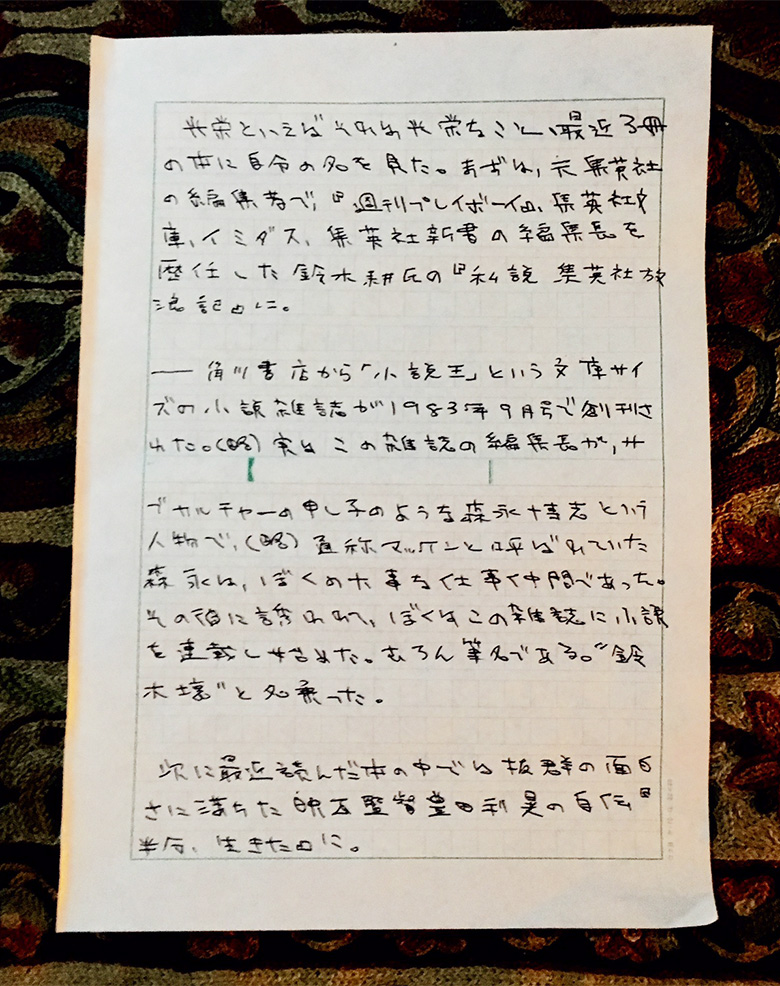 光栄といえばそれは光栄なこと、最近3冊
の本に自分の名を見た。まずは、元集英社
の編集者で、『週刊プレイボーイ』、集英社文
庫、イミダス、集英社新書の編集長を
歴任した鈴木耕氏の『私説 集英社放
浪記』に。
── 角川書店から「小説王」という文庫サイ
ズの小説雑誌が1983年9月号で創刊さ
れた。(略)実はこの雑誌の編集長が、サ
ブカルチャーの申し子のような森永博志という
人物で、(略)通称マッケンと呼ばれていた
森永は、ぼくの大事な仕事仲間であった。
その彼に誘われて、ぼくはこの雑誌に小説
を連載し始めた。むろん筆名である。“鈴
木壌”と名乗った。
次に最近読んだ本の中では抜群の面白
さに満ちた映画監督豊田利晃の自伝『
半分、生きた』に。